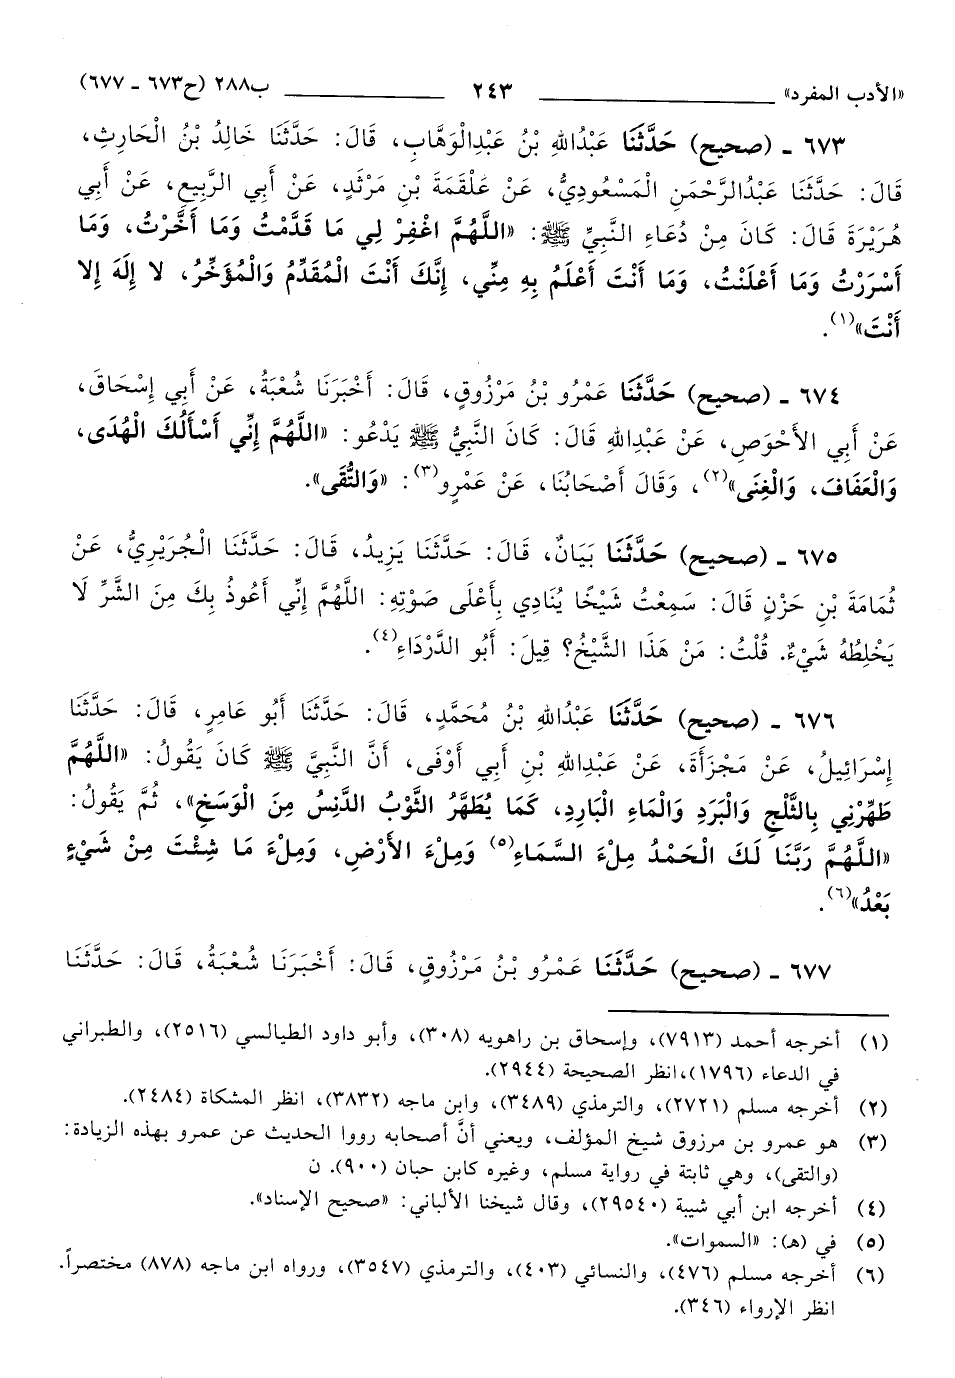 «الأدب المفرد» ٢٤٣ ب٢٨٨ (ح٦٧٣ - ٦٧٧)
٦٧٣ - (صحيح) حَدَّثَنَا عَبْدُاللهِ بْنُ عَبْدِالْوَهَّابِ، قَالَ: حَدَّثَنَا خَالِدُ بْنُ الْحَارِثِ،
قَالَ: حَدَّثَنَا عَبْدُالرَّحْمَنِ الْمَسْعُودِيُّ، عَنْ عَلْقَمَةَ بْنِ مَرْثَدٍ، عَنْ أَبِي الرَّبِيعِ، عَنْ أَبِي
هُرَيْرَةَ قَالَ: كَانَ مِنْ دُعَاءِ النَّبِيِّ ﷺ: «اللَّهُمَّ اغْفِرْ لِي مَا قَدَّمْتُ وَمَا أَخَّرْتُ، وَمَا
أَسْرَرْتُ وَمَا أَعْلَنْتُ، وَمَا أَنْتَ أَعْلَمُ بِهِ مِنِّي، إِنَّكَ أَنْتَ الْمُقَدِّمُ وَالْمُؤَخِّرُ، لا إِلَهَ إِلا
أَنْتَ»(١).
٦٧٤ - (صحيح) حَدَّثَنَا عَمْرُو بْنُ مَرْزُوقٍ، قَالَ: أَخْبَرَنَا شُعْبَةُ، عَنْ أَبِي إِسْحَاقَ،
عَنْ أَبِي الأَحْوَصِ، عَنْ عَبْدِاللهِ قَالَ: كَانَ النَّبِيُّ ﷺ يَدْعُو: «اللَّهُمَّ إِنِّي أَسْأَلُكَ الْهُدَى،
وَالْعَفَافَ، وَالْغِنَى»(٢)، وَقَالَ أَصْحَابُنَا، عَنْ عَمْرٍو(٣): «وَالتُّقَى».
٦٧٥ - (صحيح) حَدَّثَنَا بَيَانٌ، قَالَ: حَدَّثَنَا يَزِيدُ، قَالَ: حَدَّثَنَا الْجُرَيْرِيُّ، عَنْ
ثُمَامَةَ بْنِ حَزْنٍ قَالَ: سَمِعْتُ شَيْخًا يُنَادِي بِأَعْلَى صَوْتِهِ: اللَّهُمَّ إِنِّي أَعُوذُ بِكَ مِنَ الشَّرِّ لَا
يَخْلِطُهُ شَيْءٌ. قُلْتُ: مَنْ هَذَا الشَّيْخُ؟ قِيلَ: أَبُو الدَّرْدَاءِ(٤).
٦٧٦ - (صحيح) حَدَّثَنَا عَبْدُاللهِ بْنُ مُحَمَّدٍ، قَالَ: حَدَّثَنَا أَبُو عَامِرٍ، قَالَ: حَدَّثَنَا
إِسْرَائِيلُ، عَنْ مَجْزَأَةَ، عَنْ عَبْدِاللهِ بْنِ أَبِي أَوْفَى، أَنَّ النَّبِيَّ ﷺ كَانَ يَقُولُ: «اللَّهُمَّ
طَهِّرْنِي بِالثَّلْجِ وَالْبَرَدِ وَالْمَاءِ الْبَارِدِ، كَمَا يُطَهَّرُ الثَّوْبُ الدَّنِسُ مِنَ الْوَسَخِ»، ثُمَّ يَقُولُ:
«اللَّهُمَّ رَبَّنَا لَكَ الْحَمْدُ مِلْءَ السَّمَاءِ(٥) وَمِلْءَ الأَرْضِ، وَمِلْءَ مَا شِئْتَ مِنْ شَيْءٍ
بَعْدُ»(٦).
٦٧٧ - (صحيح) حَدَّثَنَا عَمْرُو بْنُ مَرْزُوقٍ، قَالَ: أَخْبَرَنَا شُعْبَةُ، قَالَ: حَدَّثَنَا
(١) أخرجه أحمد (٧٩١٣)، وإسحاق بن راهويه (٣٠٨)، وأبو داود الطيالسي (٢٥١٦)، والطبراني
في الدعاء (١٧٩٦)،انظر الصحيحة (٢٩٤٤).
(٢) أخرجه مسلم (٢٧٢١)، والترمذي (٣٤٨٩)، وابن ماجه (٣٨٣٢)، انظر المشكاة (٢٤٨٤).
(٣) هو عمرو بن مرزوق شيخ المؤلف، ويعني أنَّ أصحابه رووا الحديث عن عمرو بهذه الزيادة:
(والتقى)، وهي ثابتة في رواية مسلم، وغيره كابن حبان (٩٠٠). ن
(٤) أخرجه ابن أبي شيبة (٢٩٥٤٠)، وقال شيخنا الألباني: «صحيح الإسناد».
(٥) في (هـ): «السموات».
(٦) أخرجه مسلم (٤٧٦)، والنسائي (٤٠٣)، والترمذي (٣٥٤٧)، ورواه ابن ماجه (٨٧٨) مختصراً.
انظر الإرواء (٣٤٦).